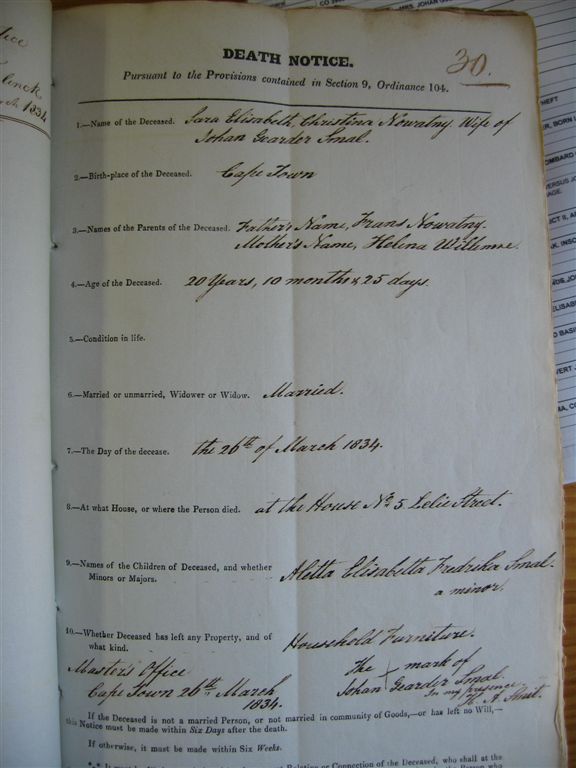 DEATH NOTICE.
30.
Pursuant to the Provisions contained in Section 9, Ordinance 104.
1.—Name of the Deceased. Sara Elisabeth Christina Nowatny Wife of
Johan Gearder Smal.
2.—Birth-place of the Deceased. Cape Town
3.—Names of the Parents of the Deceased. Father's Name, Frans Nowatny.
Mother's Name, Helena Willemse.
4.—Age of the Deceased. 20 Years, 10 months & 25 days.
5.—Condition in life.
6.—Married or unmarried, Widower or Widow. Married.
7.—The Day of the decease. the 26th of March 1834.
8.—At what House, or where the Person died. at the House No. 5 Lelie Street.
9.—Names of the Children of Deceased, and whether
Minors or Majors.
Aletta Elisabetta Fredrika Smal.
a minor.
10.—Whether Deceased has left any Property, and of
what kind.
Household Furneture.
Master's Office
Cape Town 26th March
1834.
The mark of
Johan Gearder Smal.
In my presence
If the Deceased is not a married Person, or not married in community of Goods,—or has left no Will,—
this Notice must be made within Six Days after the death.
If otherwise, it must be made within Six Weeks.
Relative or Connection of the Deceased, who shall at the